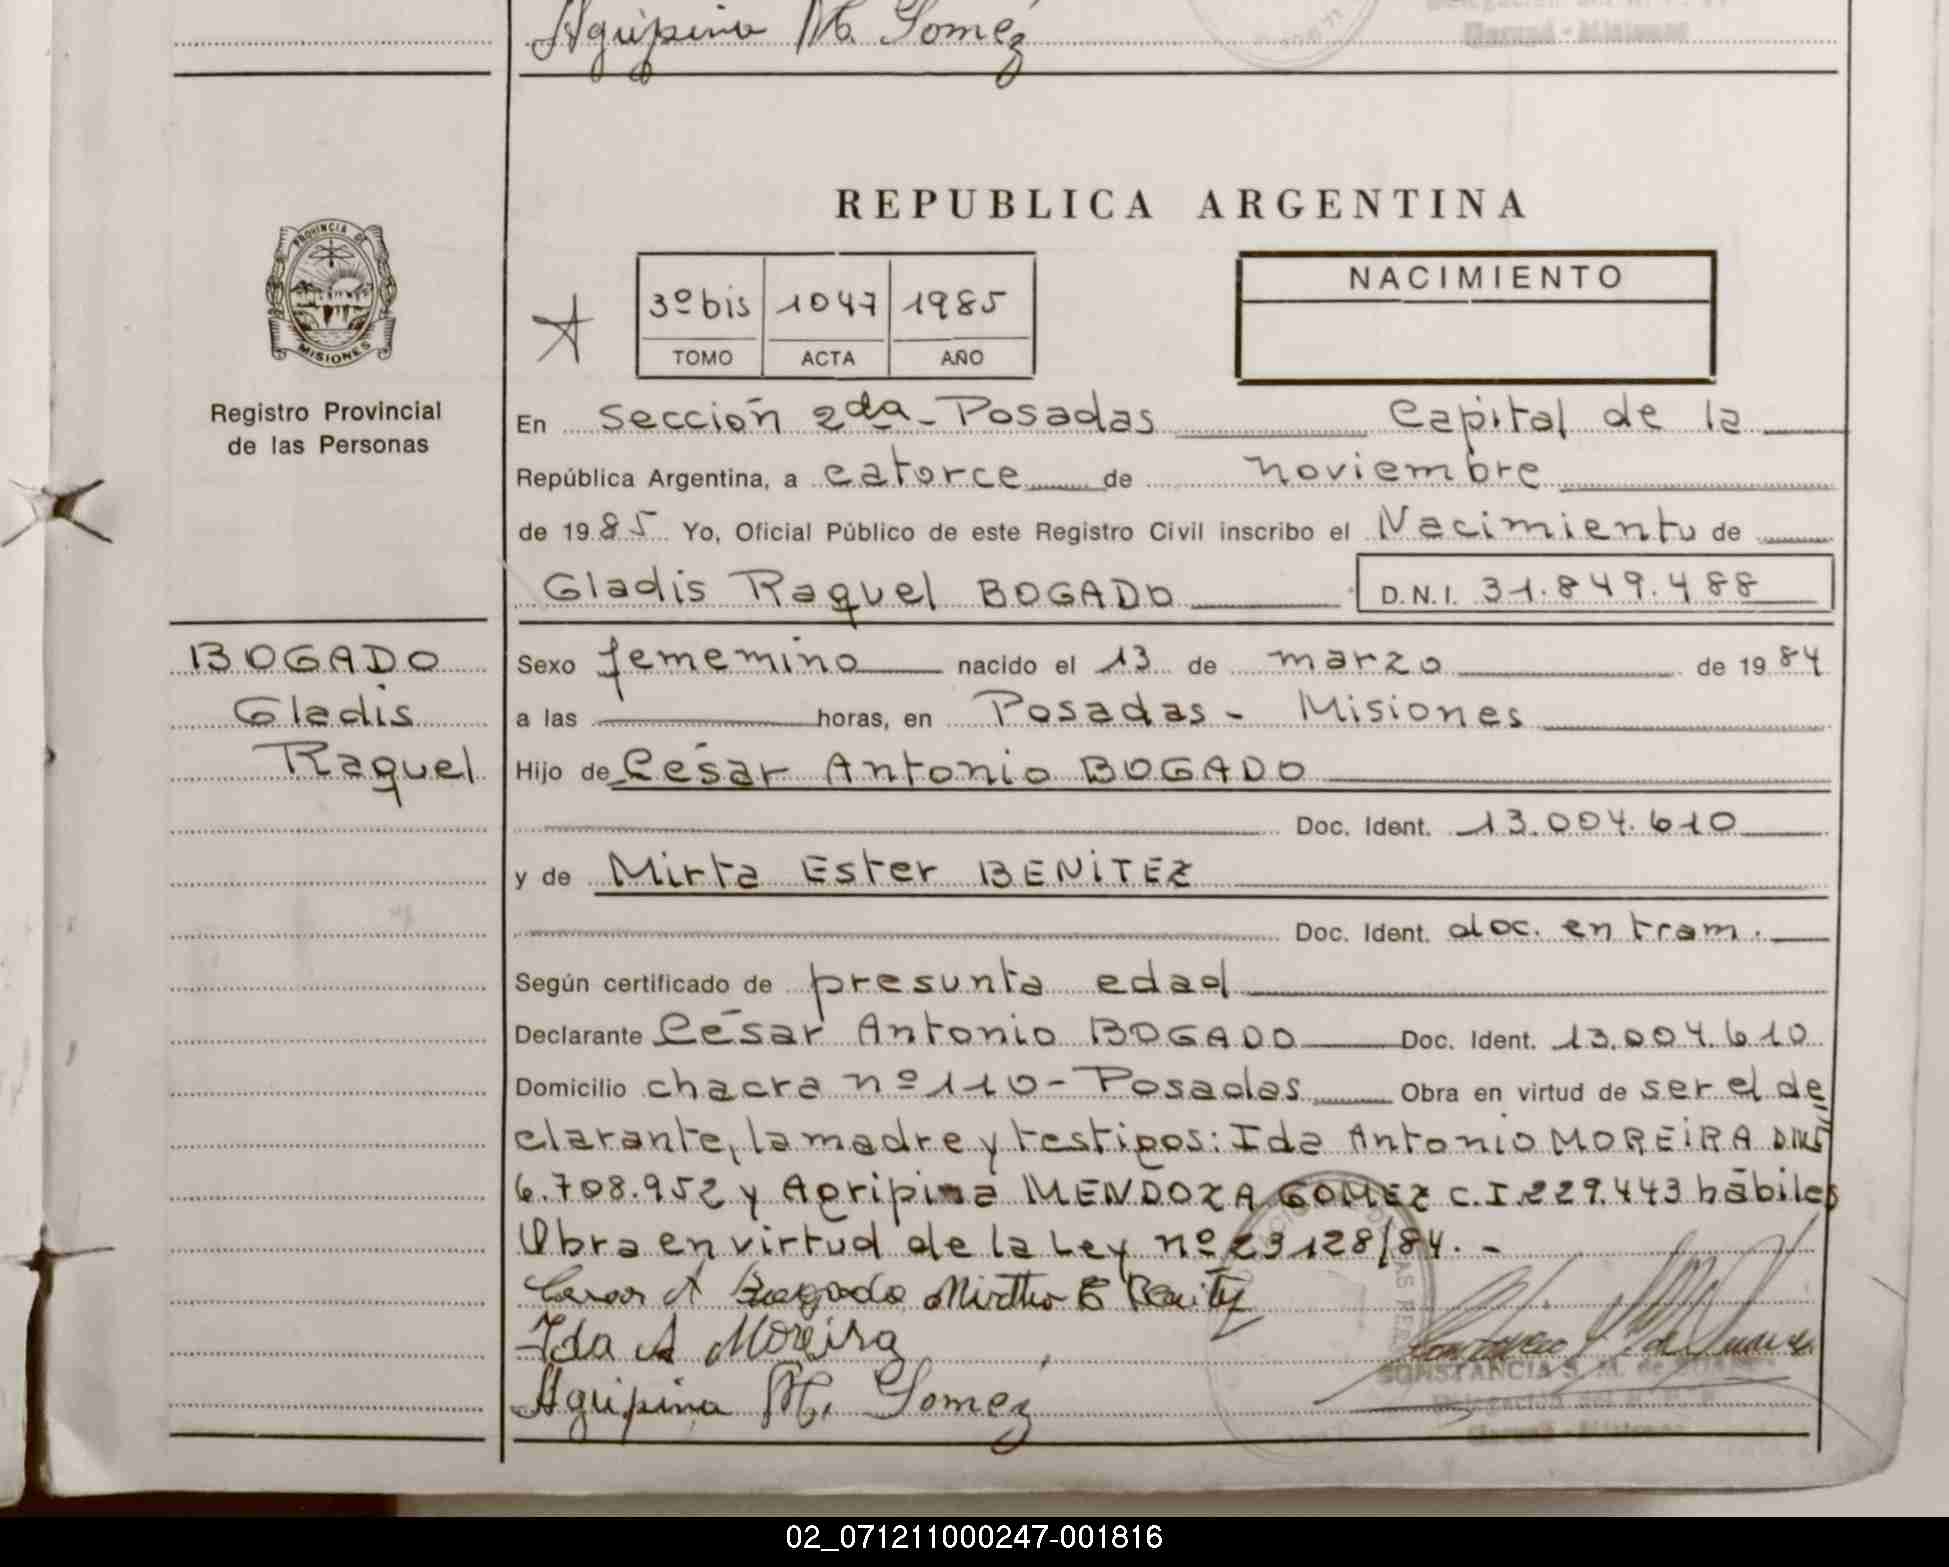 Agripina M. Gomez
REPUBLICA ARGENTINA
PROVINCIA DE
MISIONES
Registro Provincial
de las Personas
3º bis 1047 1985
TOMO ACTA AÑO
NACIMIENTO
En Sección 2da - Posadas Capital de la
República Argentina, a catorce de noviembre
de 1985 Yo, Oficial Público de este Registro Civil inscribo el Nacimiento de
Gladis Raquel BOGADO D.N.I. 31.849.488
BOGADO
Gladis
Raquel
Sexo fememino nacido el 13 de marzo de 1984
a las horas, en Posadas - Misiones
Hijo de César Antonio BOGADO
Doc. Ident. 13.004.610
y de Mirta Ester BENITEZ
Doc. Ident. doc. en tram.
Según certificado de presunta edad
Declarante César Antonio BOGADO Doc. Ident. 13.004.610
Domicilio chacra nº 110 - Posadas Obra en virtud de ser el de
clarante, la madre y testigos: Ida Antonio MOREIRA DNI
6.708.952 y Agripina MENDOZA GOMEZ C.I. 229.443 hábiles
Obra en virtud de la Ley nº 23128/84. -
Cesar A Bogado Mirtha E Benitez
Ida A Moreira
Agripina M. Gomez
CONSTANCIA S. M. de
02_071211000247-001816